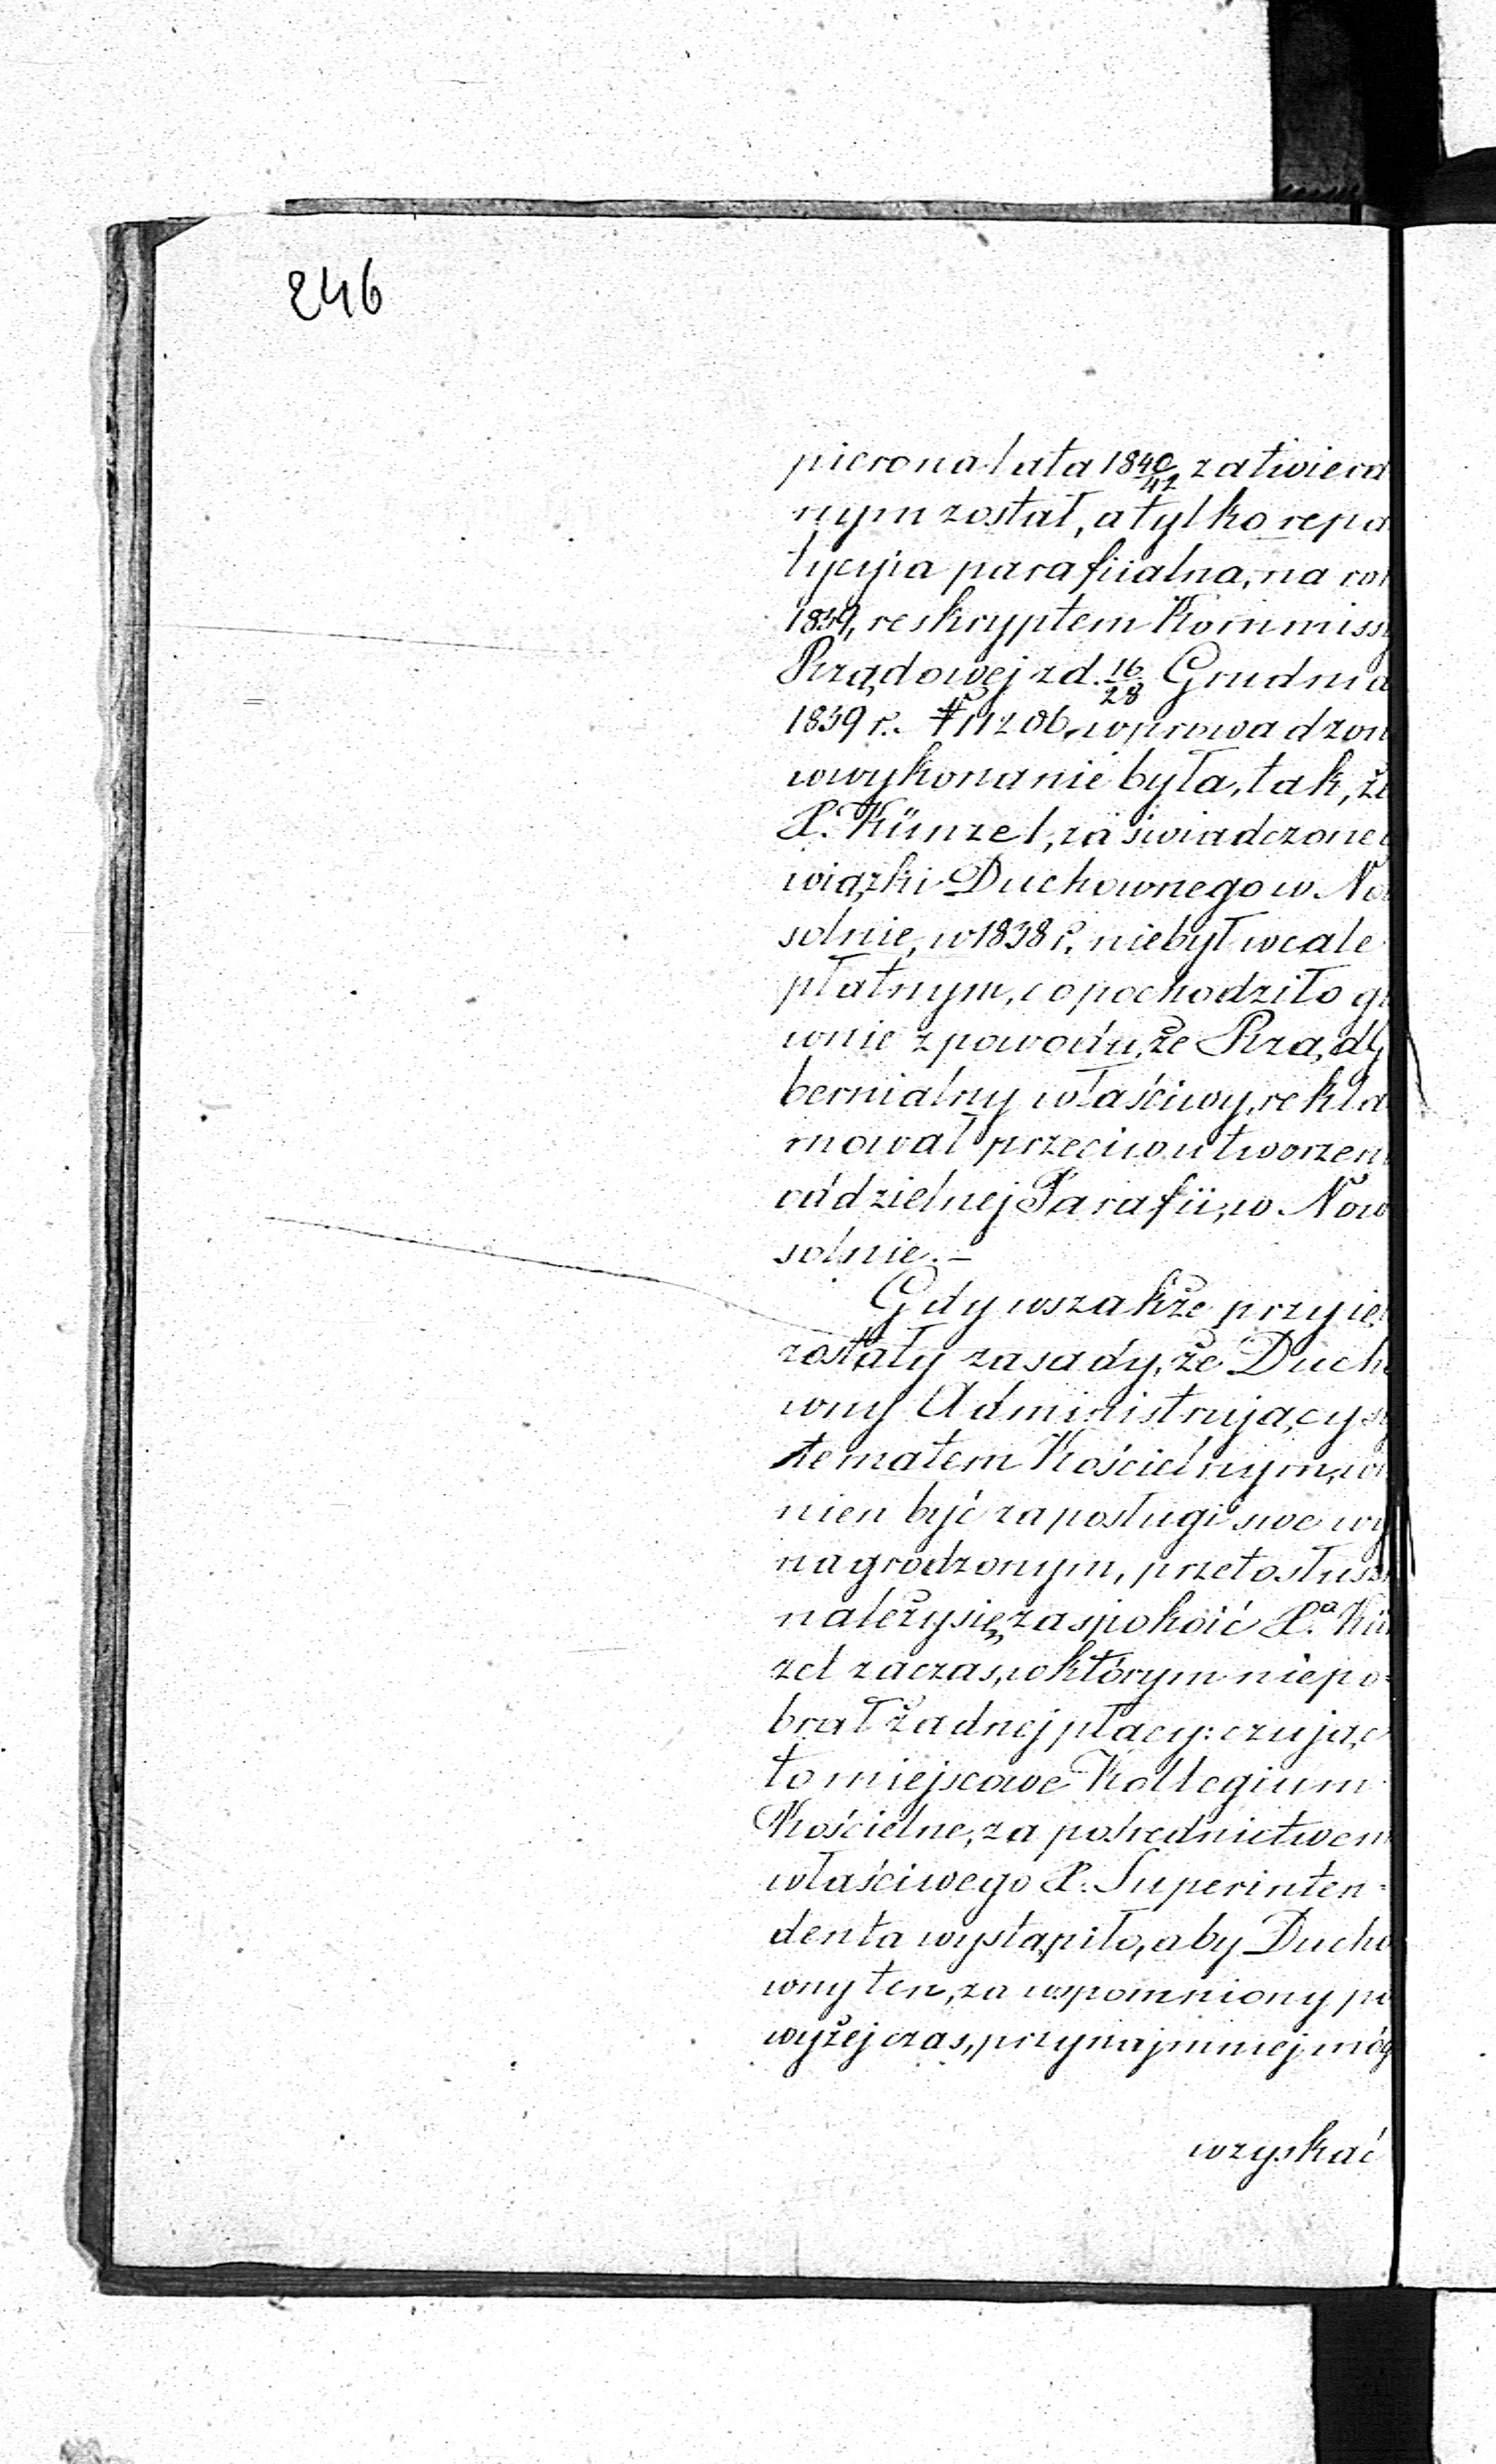 246
piero na lata 1840/42 zatwierd
nym został, a tylko repa
tycyia parafiialna, na ro
1839, reskryptem Kommissy
Rządowej z d. 16/28 Grudnia
1839 r. # 11206, wprowadzon
w wykonanie była, tak, że
P. Künzel, za świadczone
wiązki Duchownego w No
solnie, w 1838 r. niebył wcale
płatnym, co pochodziło g
wnie z powodu, że Rząd
bernialny właściwy, rekla
mował przeciw utworzen
oddzielnej Parafii, w Now
solnie.-
Gdy wszakże przyię
zostały zasady, że Duch
wny Administrujący sy
tematem Kościelnym, wi
nien być za posługi swe wy
nagrodzonym, przeto słusz
należy się, zaspokoić Pa. Kü
zel za czas, w którym niepo=
brał żadnej płacy: czując
to miejscowe Kollegium
Kościelne, za pośrednictwem
właściwego P. Superinten=
denta wystąpiło, aby Ducho
wny ten, za wspomniony po
wyżej czas, przynajmniej móg
wzyskać